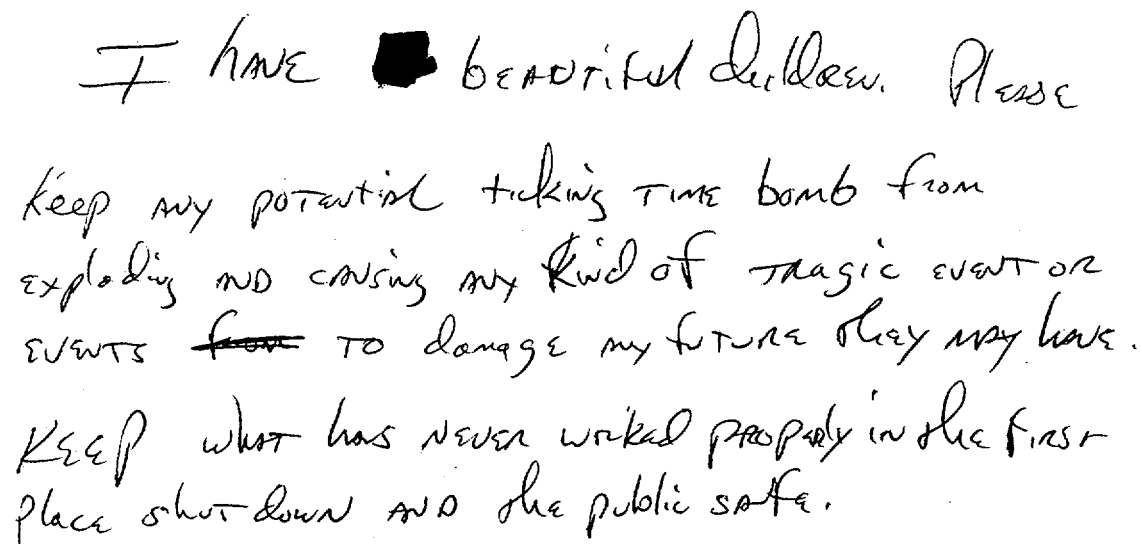 I have beautiful children. Please
Keep any potential ticking time bomb from
exploding and causing any kind of tragic event or
events to damage any future they may have.
Keep what has never worked properly in the first
place shutdown and the public safe.